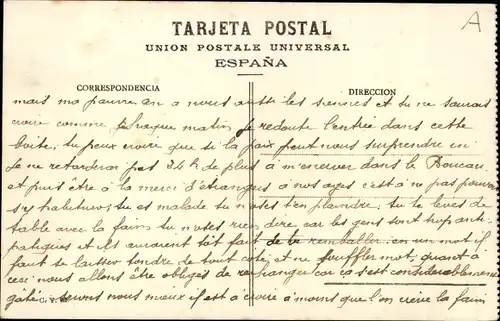 A
TARJETA POSTAL
UNION POSTALE UNIVERSAL
ESPAÑA
CORRESPONDENCIA
DIRECCION
mais ma pauvre on a nous aussi les et tu ne saurais
croire comme chaque matin je redoute l'entrée dans cette
boite, tu peux croire que si la paix peut nous surprendre ici
je ne retarderai pas 24h de plus à dans le Boucau
et puis être à la merci d'étrangers à nos ages c'est à ne pas pouvoir
s'y habituer; tu es malade tu n'oses t'en plaindre, tu te lèves de
table avec la faim tu n'oses rien dire car les gens sont trop anti
patiques et ils auraient tôt fait de te remballer. en un mot il
faut se laisser tondre de tout coté et ne souffler mot, quant à
ceci nous allons être obligés de car ça s'est considérablement
gâté. serons nous mieux il est à croire à moins que l'on crève la faim